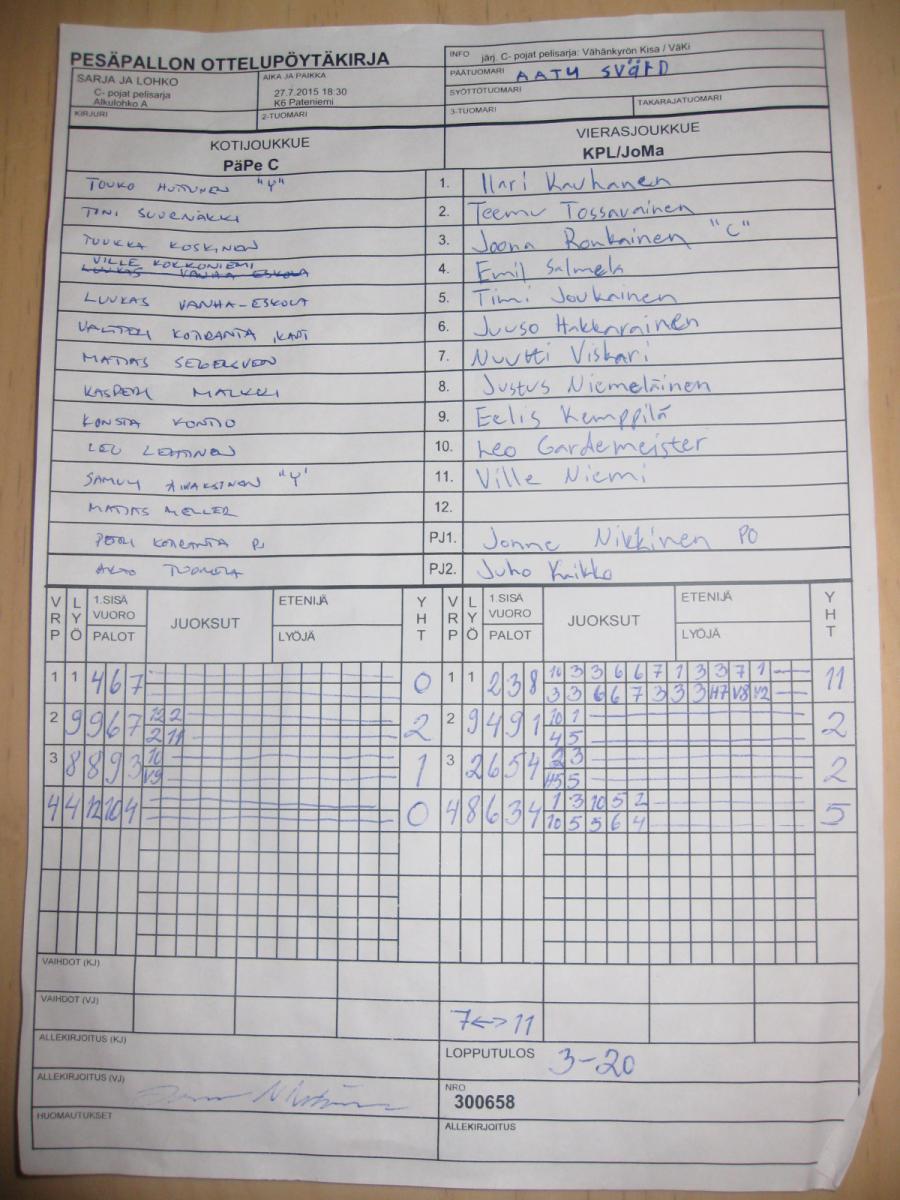 PESÄPALLON OTTELUPÖYTÄKIRJA
INFO järj. C- pojat pelisarja: Vähänkyrön Kisa / VäKi
SARJA JA LOHKO
C- pojat pelisarja
Alkulohko A
AIKA JA PAIKKA
27.7.2015 18:30
K6 Pateniemi
PÄÄTUOMARI AATU SVÄRD
SYÖTTÖTUOMARI
KIRJURI
2-TUOMARI
3-TUOMARI
TAKARAJATUOMARI
KOTIJOUKKUE
PäPe C
VIERASJOUKKUE
KPL/JoMa
TOUKO HUTTUNEN "Y" 1. Ilari Kauhanen
TINI 2. Teemu Tossavainen
TUUKKA KOSKINEN 3. Joona Ronkainen "C"
VILLE KOKKONIEMI
LUUKAS VANHA-ESKOLA 4. Emil Salmela
LUUKAS VANHA-ESKOLA 5. Timi Joukainen
VALTTERI KOTIRANTA 6. Juuso Hakkarainen
MATIAS 7. Nuutti Viskari
KASPERI MALKKI 8. Justus Niemeläinen
KONSTA KONTIO 9. Eelis Kemppilä
LEO LEHTINEN 10. Leo Gardemeister
SAMULI "Y" 11. Ville Niemi
MATIAS MELLER 12.
PETRI KOTIRANTA PJ PJ1. Jonne Nikkinen PO
PJ2. Juho Kaikko
VRP LYÖ 1.SISÄ VUORO PALOT JUOKSUT ETENIJÄ LYÖJÄ YHT VRP LYÖ 1.SISÄ VUORO PALOT JUOKSUT ETENIJÄ LYÖJÄ YHT
1 1 4 6 7 0 1 1 2 3 8 10 3 3 6 6 7 1 3 3 7 1 11
3 3 6 6 7 3 3 3 H7 V8 V2
2 9 9 6 7 12 2 2 2 9 4 9 1 10 1 2
2 11 4 5
3 8 8 9 3 10 1 3 2 6 5 4 2 3 2
V9 H5 5
4 4 12 10 4 0 4 8 6 3 4 1 3 10 5 2 5
10 5 5 6 4
VAIHDOT (KJ)
VAIHDOT (VJ) 7<->11
ALLEKIRJOITUS (KJ)
LOPPUTULOS 3-20
ALLEKIRJOITUS (VJ)
NRO
300658
HUOMAUTUKSET
ALLEKIRJOITUS